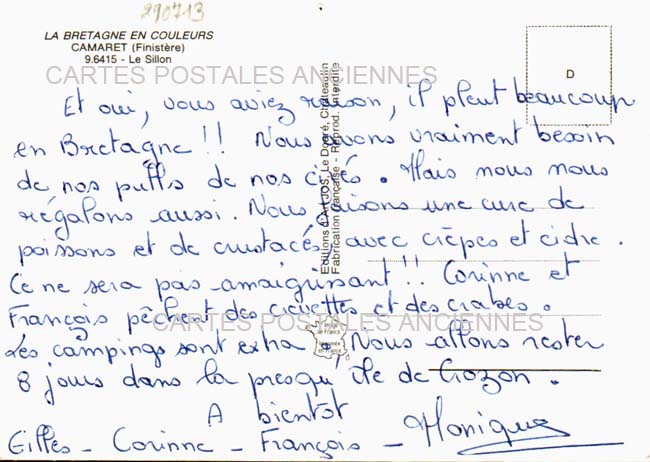 290713
LA BRETAGNE EN COULEURS
CAMARET (Finistère)
9.6415 - Le Sillon
D
CARTES POSTALES ANCIENNES
Et oui, vous aviez raison, il pleut beaucoup
en Bretagne !! Nous avons vraiment besoin
de nos pulls de nos cirés. Mais nous nous
régalons aussi. Nous faisons une cure de
poissons et de crustacés avec crêpes et cidre.
Ce ne sera pas amaigrissant !! Corinne et
François pêchent des crevettes et des crabes.
CARTES POSTALES ANCIENNES
Les campings sont extra. Nous allons rester
8 jours dans la presqu'île de Crozon.
A bientôt
Gilles - Corinne - François - Monique
Editions d'Art JOS, Le Doaré, Châteaulin
Fabrication Française - Reprod. Interdite